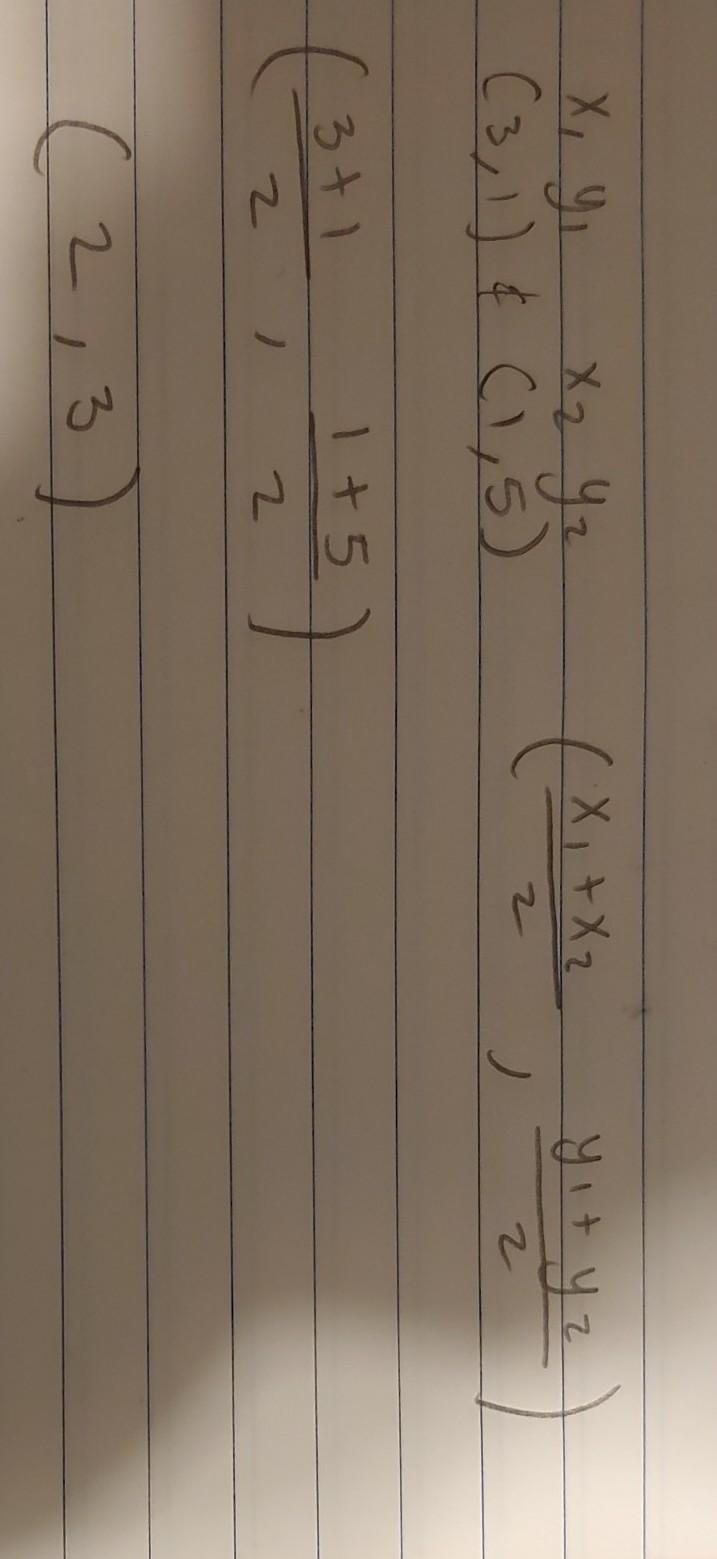 x₁ y₁ x₂ y₂
(3,1) & (1,5) (x₁+x₂/2 , y₁+y₂/2)
(3+1/2 , 1+5/2)
(2,3)